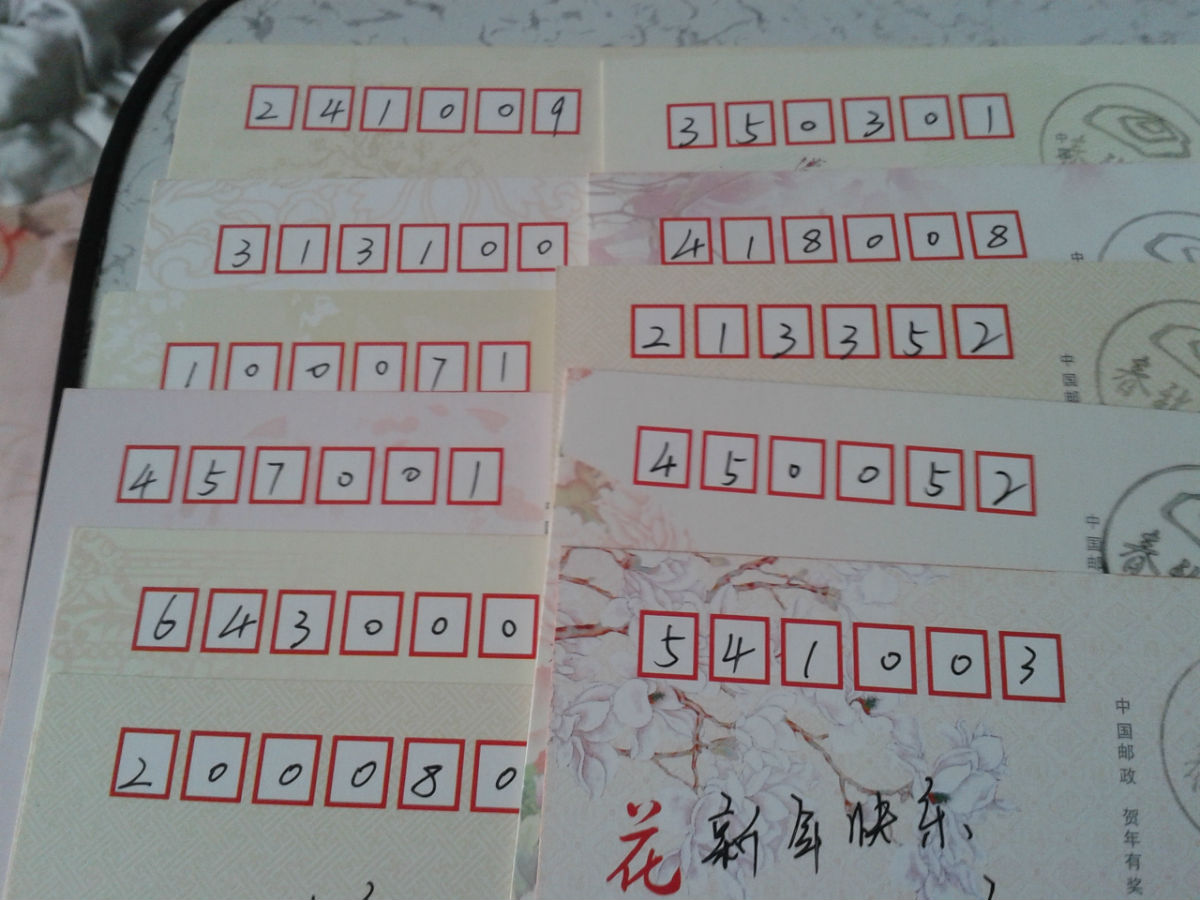 241009
350301
313100
418008
100071
213352
457001
450052
643000
541003
200080
中国邮
春
中国邮
春
中国邮政 贺年有奖
花新年快乐